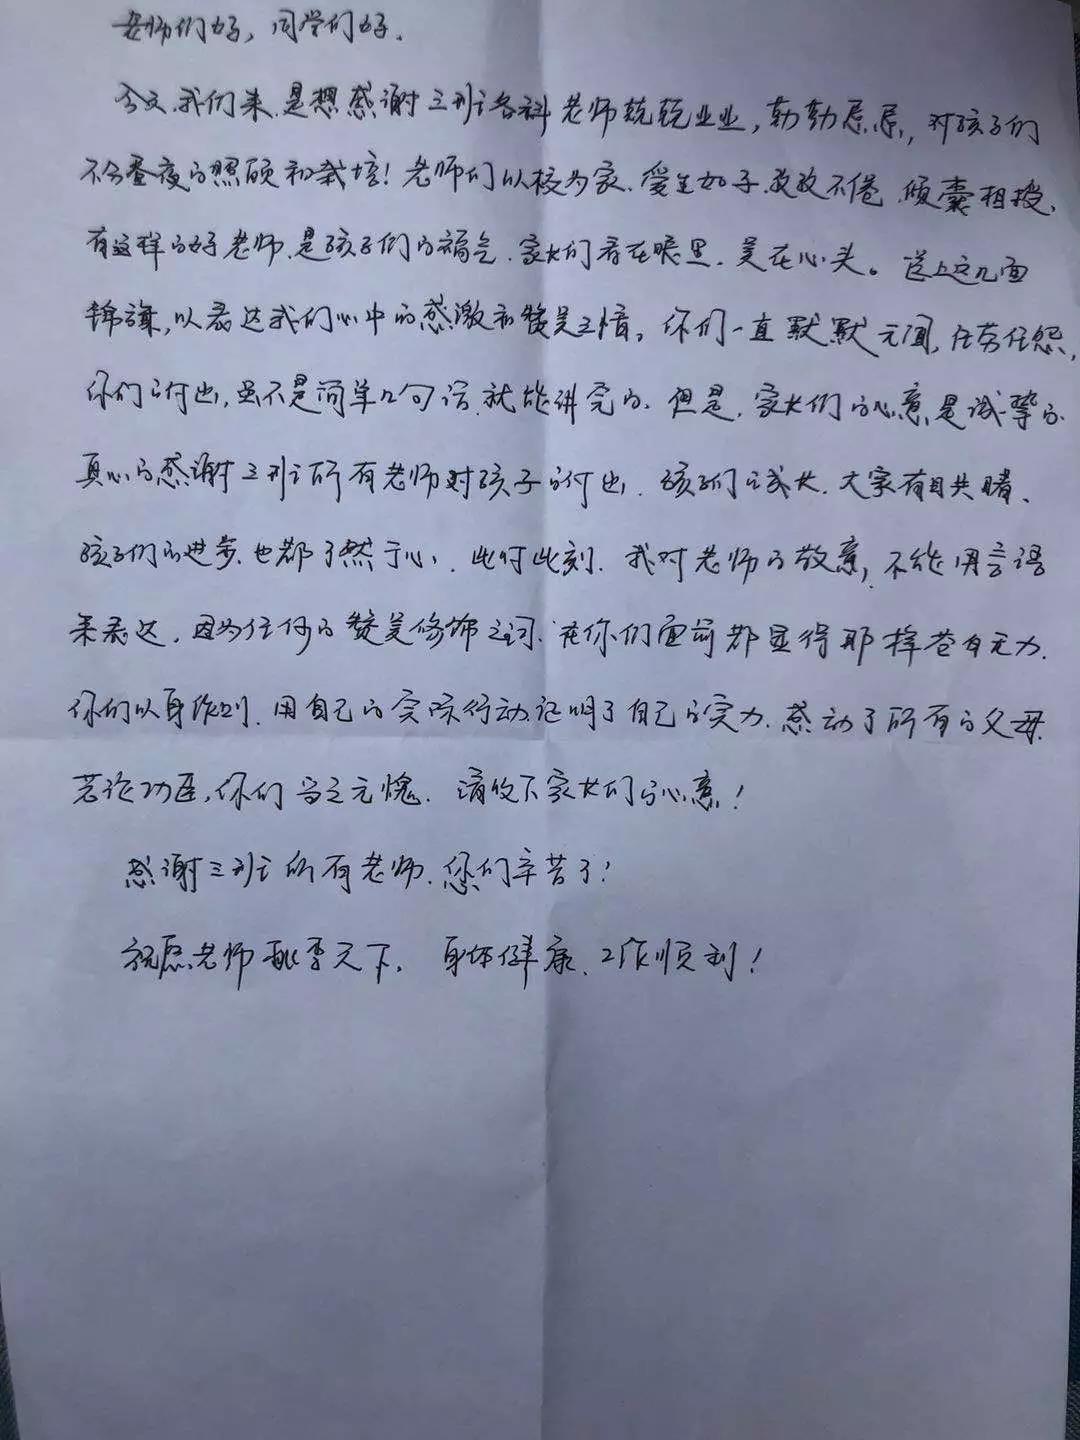 老师们好，同学们好.
今天,我们来,是想感谢三班各科老师兢兢业业,勤勤恳恳,对孩子们
不分昼夜的照顾和栽培!老师们以校为家.爱生如子.孜孜不倦.倾囊相授、
有这样的好老师.是孩子们的福气.家长们看在眼里.美在心头。送上这几面
锦旗,以表达我们心中的感激和赞美之情。你们一直默默无闻,任劳任怨,
你们的付出,虽不是简单几句话.就能讲完的.但是.家长们的心意是诚挚的.
真心的感谢三班所有老师对孩子的付出.孩子们的成长.大家有目共睹、
孩子们的进步.也都了然于心.此时此刻.我对老师的敬意,不能用言语
来表达.因为任何的赞美修饰之词.在你们面前都显得那样苍白无力.
你们以身作则.用自己的实际行动,证明了自己的实力.感动了所有的父母.
若论功臣,你们当之无愧.请收下家长们的心意!
感谢三班所有老师.您们辛苦了!
祝愿老师桃李天下.身体健康、工作顺利!